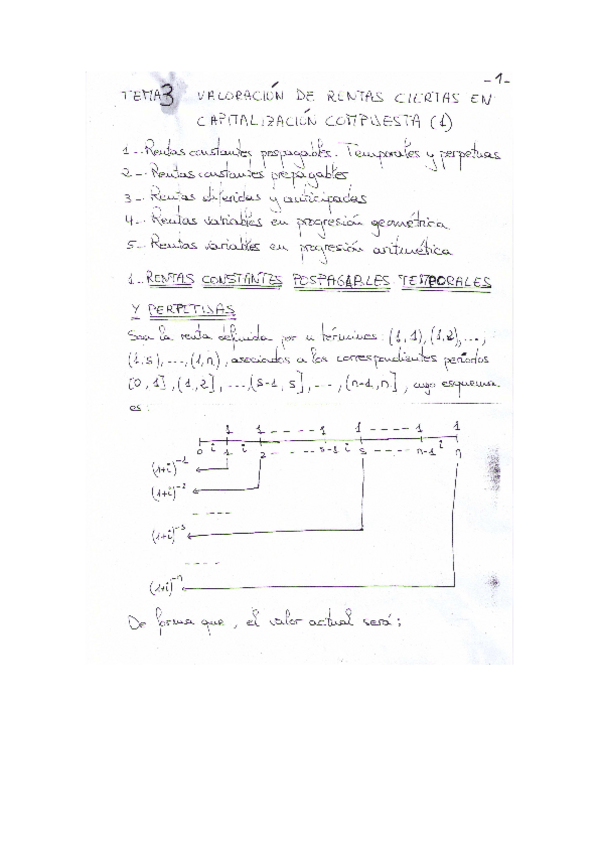 -1-
TEMA 3 VALORACIÓN DE RENTAS CIERTAS EN
CAPITALIZACIÓN COMPUESTA (1)
1.- Rentas constantes pospagables. Temporales y perpetuas
2.- Rentas constantes prepagables
3.- Rentas diferidas y anticipadas
4.- Rentas variables en progresión geométrica
5.- Rentas variables en progresión aritmética
1.- RENTAS CONSTANTES POSPAGABLES TEMPORALES
Y PERPETUAS
Sea la renta definida por n términos: (1,1), (1,2), ...,
(1,s), ..., (1,n), asociados a los correspondientes periodos
[0,1], (1,2], ..., (s-1,s], ..., (n-1,n], cuyo esquema
es:
1 1 - - - - 1 1 - - - - 1 1
0 i 1 i 2 - - - - s-1 i s - - - - n-1 i n
(1+i)⁻¹
(1+i)⁻²
- - - - -
(1+i)⁻ˢ
- - - -
(1+i)⁻ⁿ
De forma que, el valor actual será: